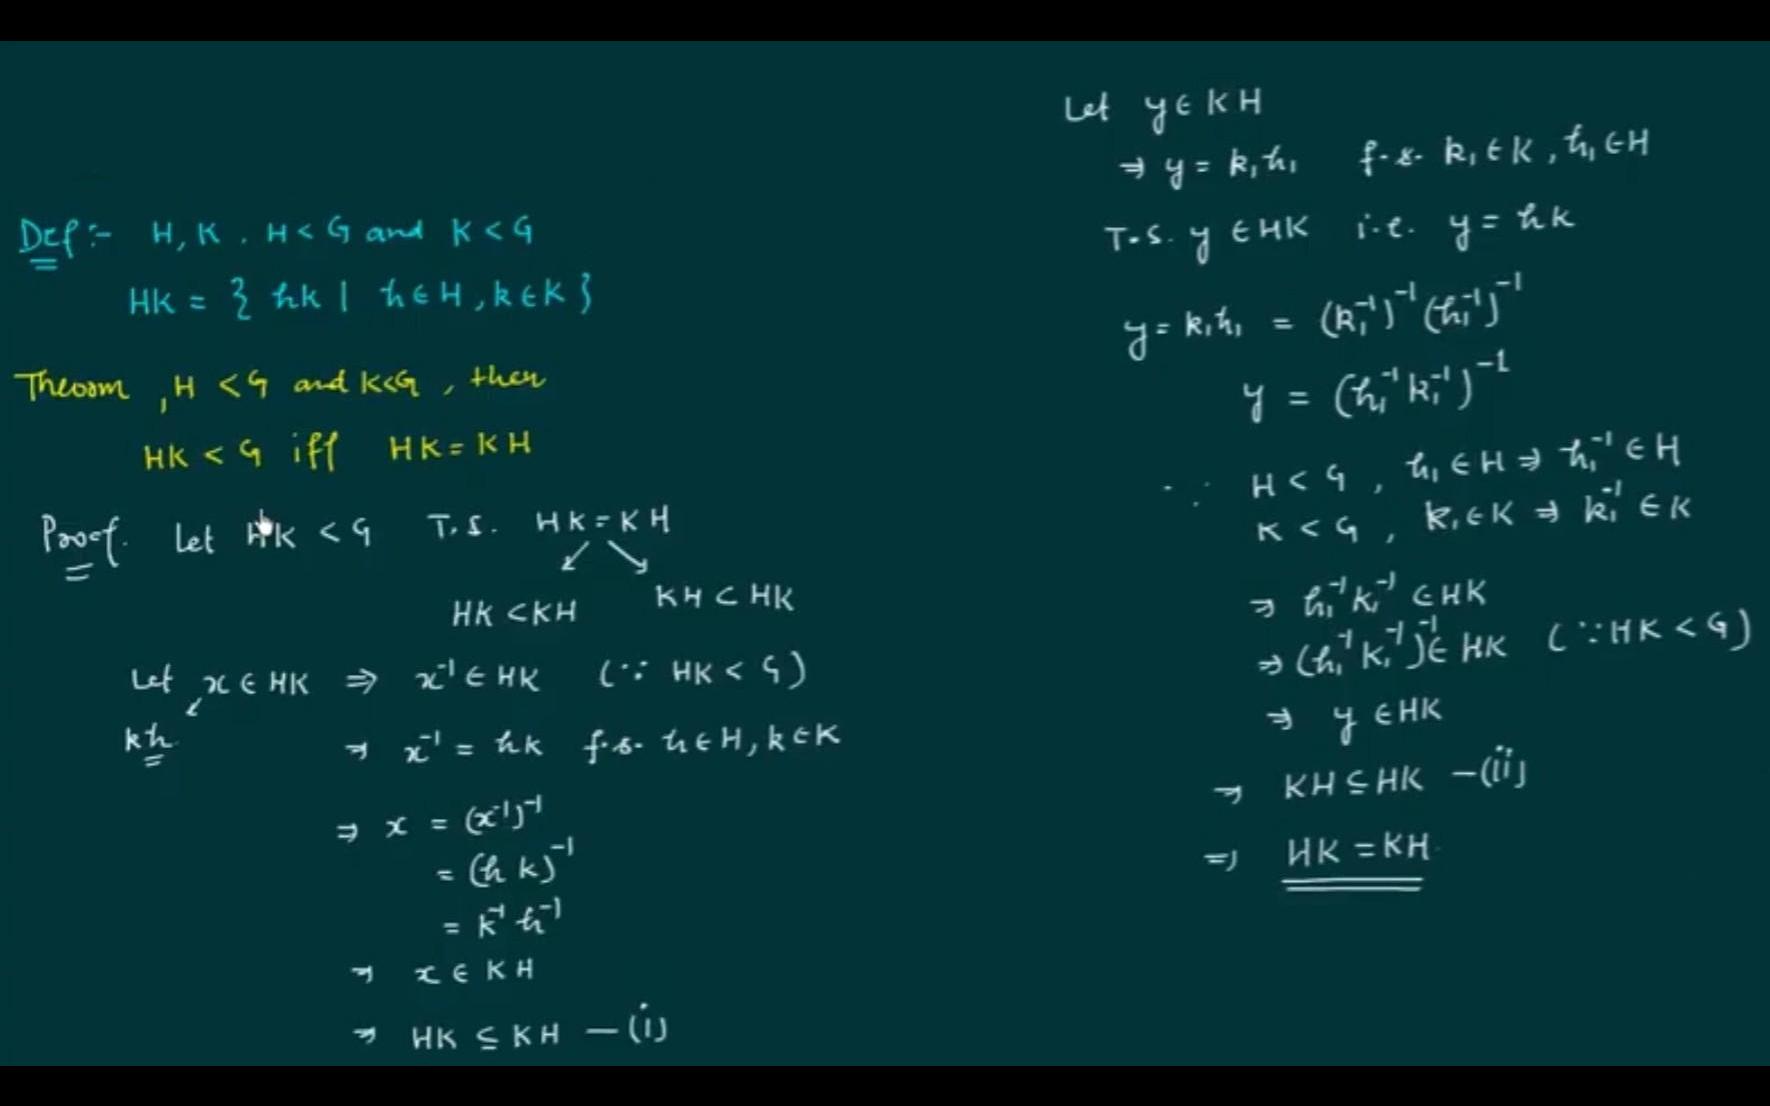 Def:- H, K. H < G and K < G
HK = { hk | h ∈ H, k ∈ K }
Theorm, H < G and K < G, then
HK < G iff HK = KH
Proof. Let HK < G T.S. HK = KH
HK < KH KH ⊂ HK
Let x ∈ HK ⇒ x⁻¹ ∈ HK (∵ HK < G)
kh
⇒ x⁻¹ = hk f.s. h ∈ H, k ∈ K
⇒ x = (x⁻¹)⁻¹
= (h k)⁻¹
= k⁻¹ h⁻¹
⇒ x ∈ KH
⇒ HK ⊆ KH —(i)
Let y ∈ KH
⇒ y = k₁h₁ f.s. k₁ ∈ K, h₁ ∈ H
T.S. y ∈ HK i.e. y = hk
y = k₁h₁ = (k₁⁻¹)⁻¹ (h₁⁻¹)⁻¹
y = (h₁⁻¹ k₁⁻¹)⁻¹
∵ H < G, h₁ ∈ H ⇒ h₁⁻¹ ∈ H
K < G, k₁ ∈ K ⇒ k₁⁻¹ ∈ K
⇒ h₁⁻¹ k₁⁻¹ ∈ HK
⇒ (h₁⁻¹ k₁⁻¹)⁻¹ ∈ HK (∵ HK < G)
⇒ y ∈ HK
⇒ KH ⊆ HK —(ii)
⇒ HK = KH